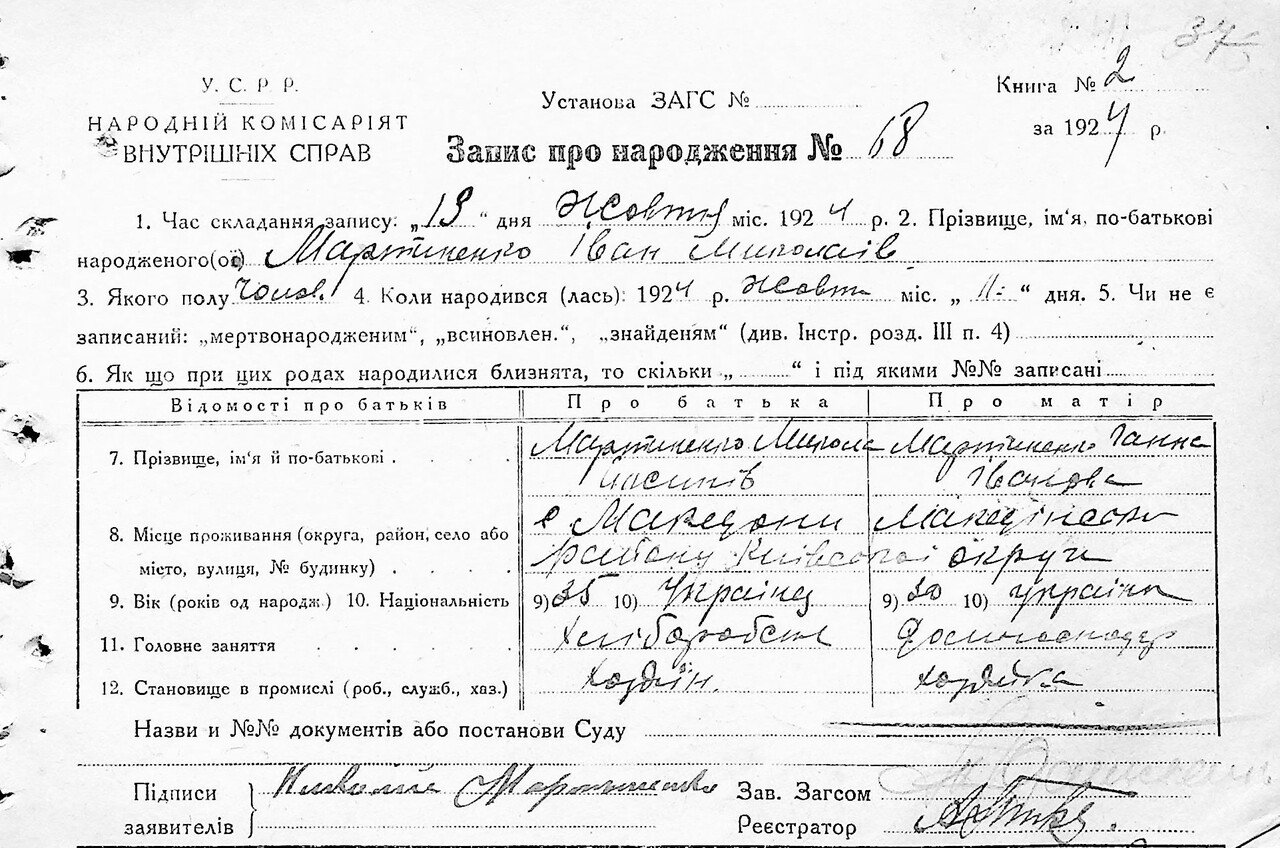 37
У. С. Р. Р.
НАРОДНІЙ КОМІСАРІЯТ
ВНУТРІШНІХ СПРАВ
Установа ЗАГС №
Книга № 2
за 1924 р.
Запис про народження № 68
1. Час складання запису: „19“ дня Жовтня міс. 1924 р. 2. Прізвище, ім'я, по-батькові
народженого(ої) Мартиненко Іван Миколаїв
3. Якого полу Чолов. 4. Коли народився (лась): 1924 р. Жовтн міс. „11“ дня. 5. Чи не є
записаний: „мертвонародженим“, „всиновлен.“, „знайденям“ (див. Інстр. розд. III п. 4)
6. Як що при цих родах народилися близнята, то скільки „ “ і під якими №№ записані
Відомості про батьків Про батька Про матір
7. Прізвище, ім'я й по-батькові Мартиненко Микола Мартиненко Ганна
Іванова
8. Місце проживання (округа, район, село або с Македони
місто, вулиця, № будинку) району Київської округи
9. Вік (років од народж.) 10. Національність 9) 35 10) Україн 9) 30 10) україн
11. Головне заняття Хлібороб
12. Становище в промислі (роб., служб., хаз.)
Назви и №№ документів або постанови Суду
Підписи
заявителів
Мартиненко
Зав. Загсом
Реєстратор